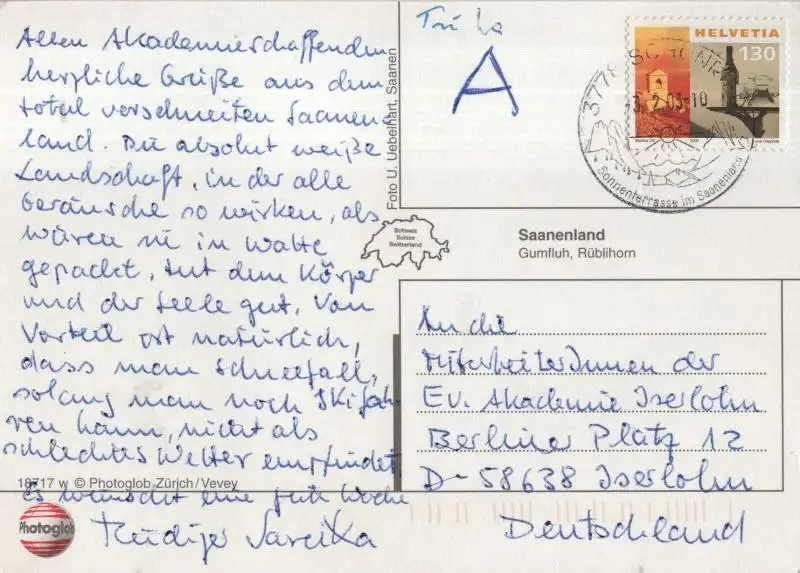 Allen Akademieschaffenden
herzliche Grüße aus dem
total verschneiten Saanen-
land. Die absolut weiße
Landschaft, in der alle
Geräusche so wirken, als
wären sie in Watte
gepackt, tut dem Körper
und der Seele gut. Von
Vorteil ist natürlich,
dass man Schneefall,
solang man noch Skifah-
ren kann, nicht als
schlechtes Wetter empfindet
Es wünscht eine gute Woche
Rüdiger Sareika
18717 w © Photoglob Zürich/Vevey
Photoglob
Foto U. Uebelhart, Saanen
Schweiz
Suisse
Switzerland
A
HELVETIA
130
3778 SCHÖNRIED
-3.2.03-10
Sonnenterrasse im Saanenland
Saanenland
Gumfluh, Rüblihorn
An die
MitarbeiterInnen der
Ev. Akademie Iserlohn
Berliner Platz 12
D-58638 Iserlohn
Deutschland